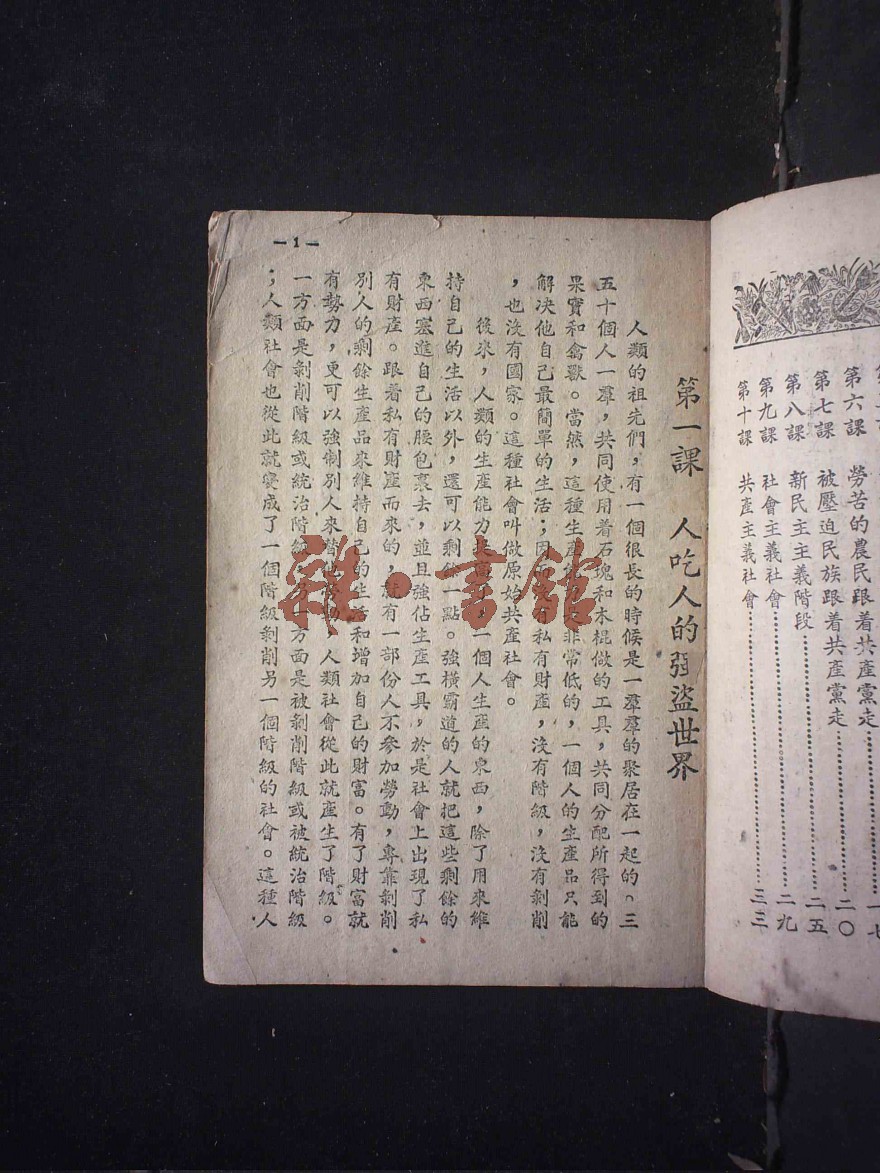 第六課 勞苦的農民跟着共產黨走……………一七
第七課 被壓迫民族跟着共產黨走……………二〇
第八課 新民主主義階段……………二五
第九課 社會主義社會……………二九
第十課 共產主義社會……………三三
第一課 人吃人的强盜世界
人類的祖先們，有一個很長的時候是一羣羣的聚居在一起的。三
五十個人一羣，共同使用着石塊和木棍做的工具，共同分配所得到的
果實和禽獸。當然，這種生產非常低的，一個人的生產品只能
解決他自己最簡單的生活；因有私有財產，沒有階級，沒有剝削
，也沒有國家。這種社會叫做原始共產社會。
後來，人類的生產能力提高了，一個人生產的東西，除了用來維
持自己的生活以外，還可以剩餘一點。強橫霸道的人就把這些剩餘的
東西塞進自己的腰包裹去，並且強佔生產工具，於是社會上出現了私
有財產。跟着私有財產而來的，就有一部份人不參加勞動，專靠剝削
別人的剩餘生產品來維持自己的生活和增加自己的財富。有了財富就
有勢力，更可以強制別人來替他勞動，人類社會從此就產生了階級。
一方面是剝削階級或統治階級，另一方面是被剝削階級或被統治階級
；人類社會也從此就變成了一個階級剝削另一個階級的社會。這種人
—1—
雜·書館